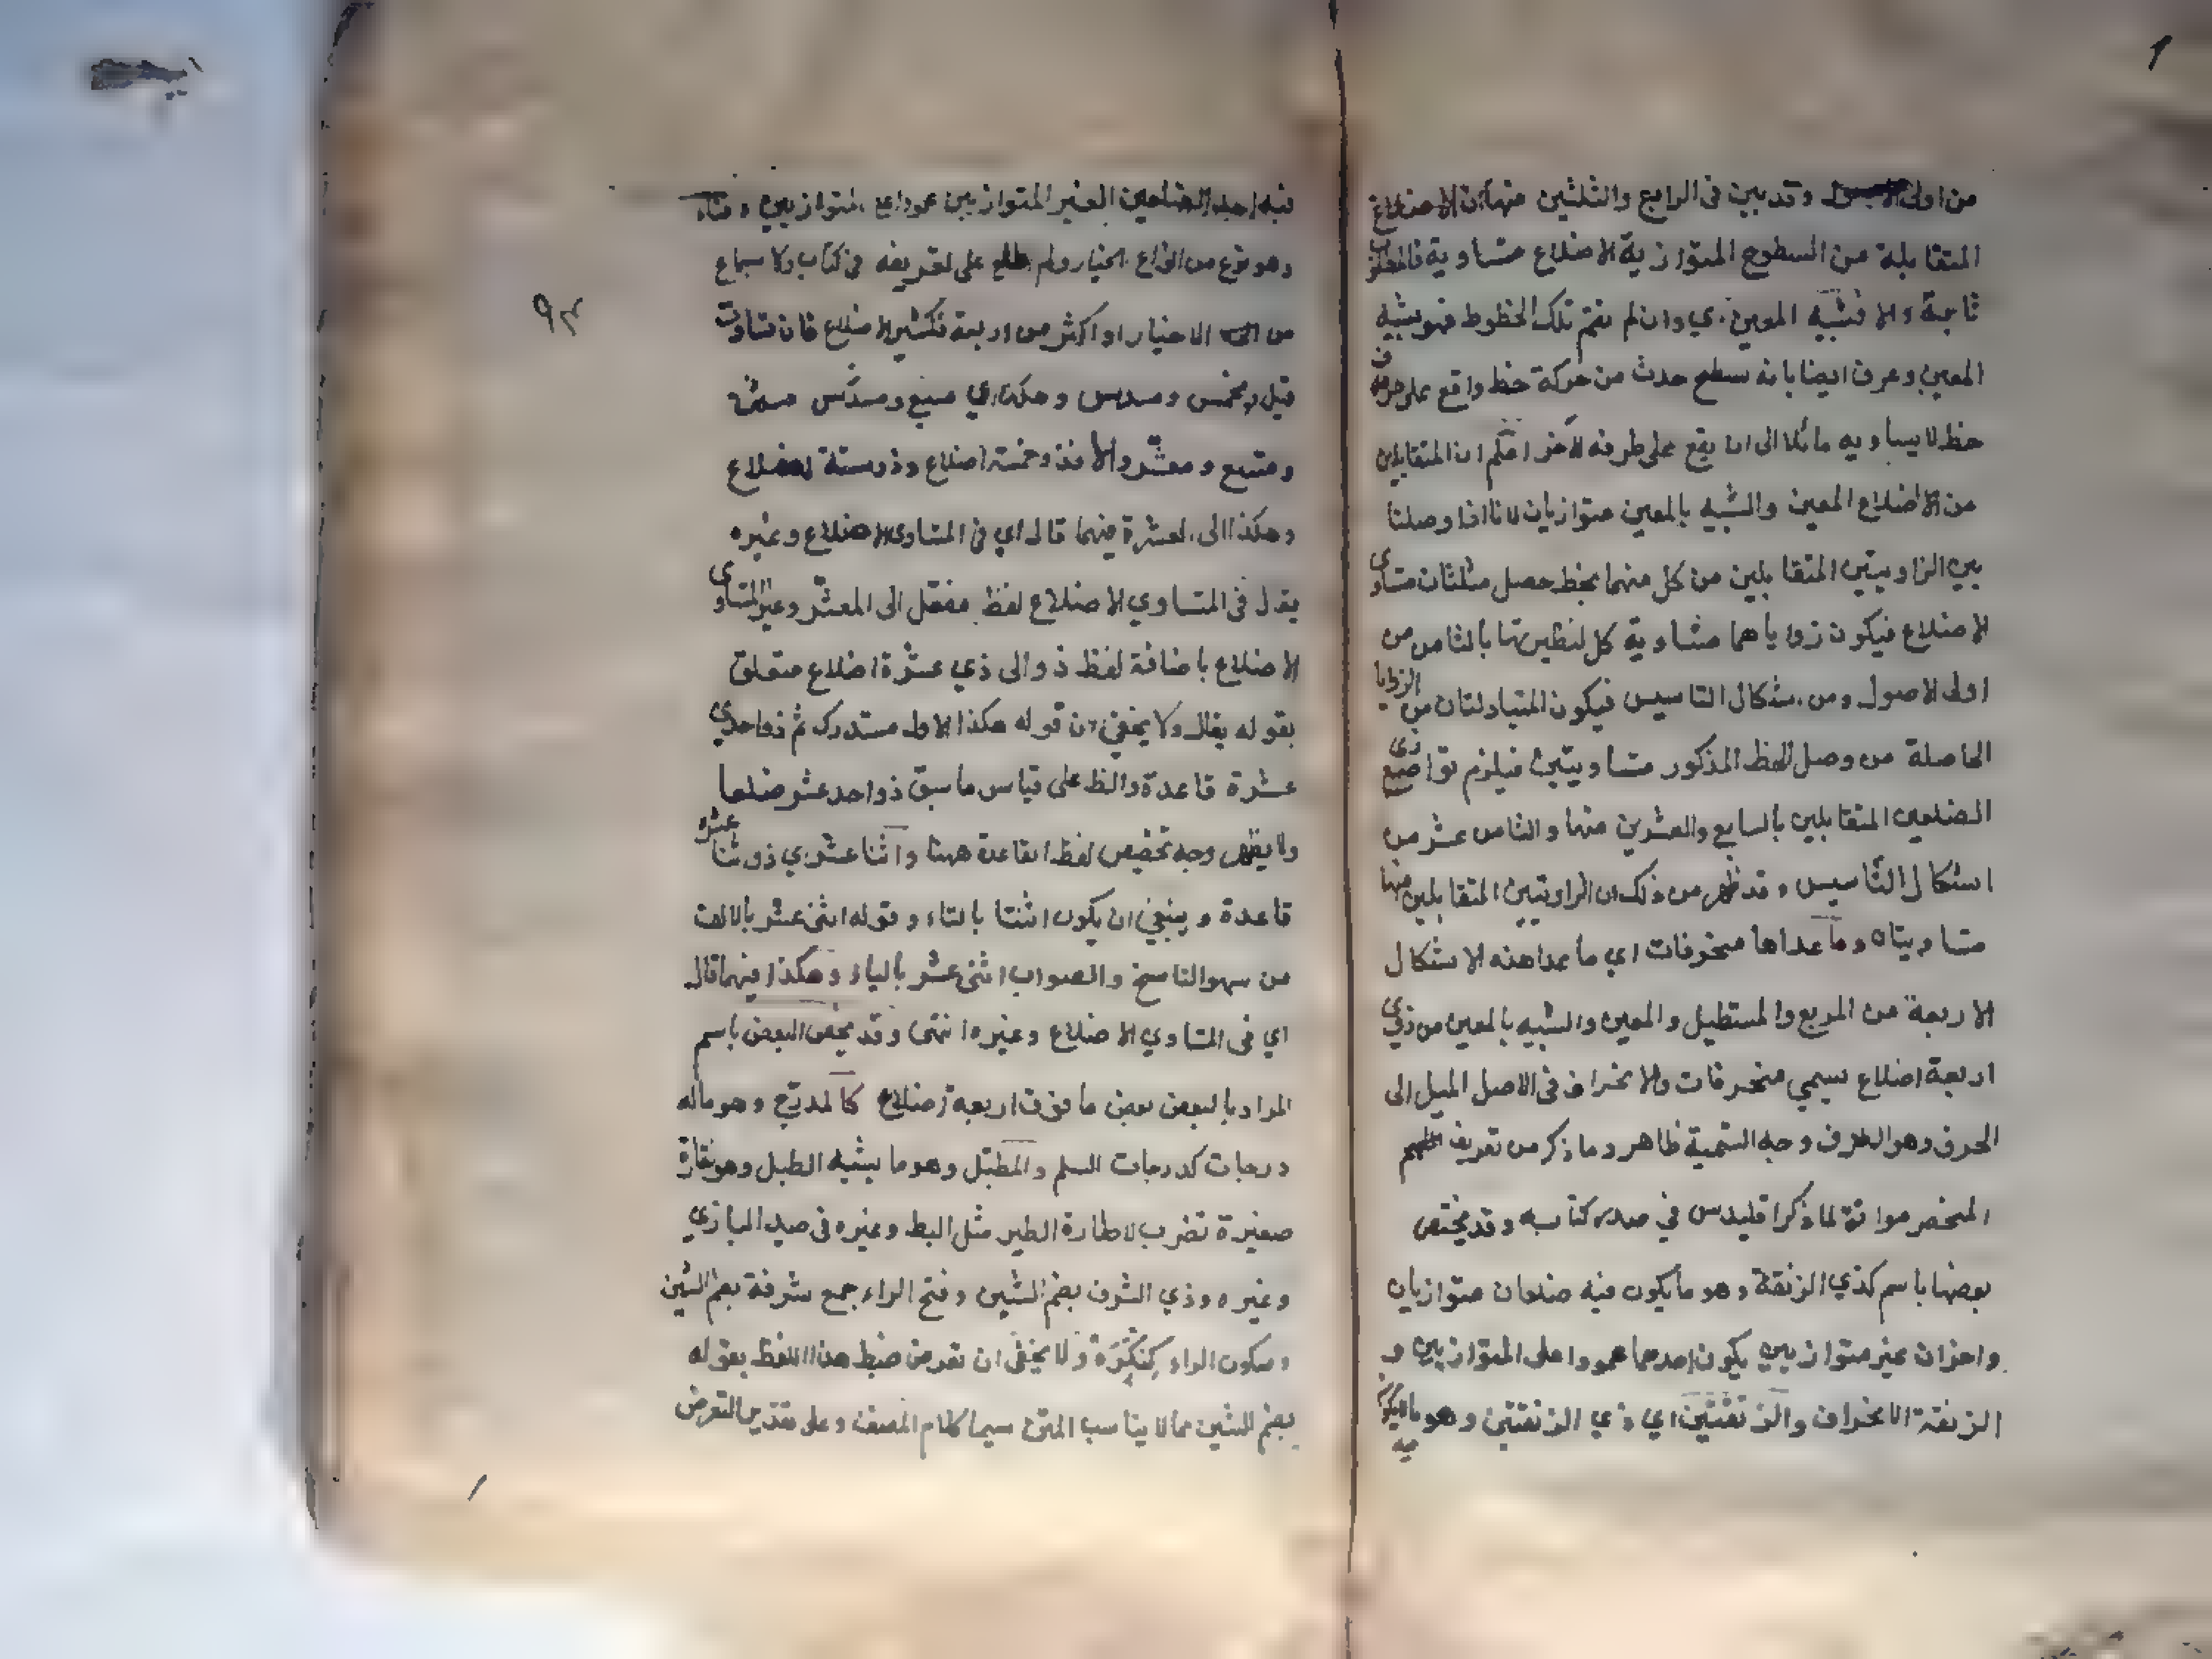 من اولى الاصول وقد بين فى الرابع والثلثين منها ان الاضلاع
المتقابلة من السطوح المتوازية الاضلاع متساوية فالمطلوب
ثابت والا فشبيه المعين اي وان لم نتمم تلك الخطوط فهو شبيه
المعين وعرف ايضا بانه سطح حدث من حركة خط واقع على طرف
خط لا يساويه مائلا الى ان يقع على طرفه الاخر اعلم ان المتقابلين
من الاضلاع المعين والشبيه بالمعين متوازيان لانا اذا وصلنا
بين الزاويتين المتقابلين من كل منهما بخط حصل مثلثان متساوي
الاضلاع فيكون زواياهما متساوية كل لنظيرتها بالثامن من
اولى الاصول ومن اشكال التاسيس فيكون المتبادلتان من الزوايا
الحاصلة من وصل الخط المذكور متساويتين فيلزم توازي
الضلعين المتقابلين بالسابع والعشرين منها والثامن عشر من
اشكال التاسيس وقد ظهر من ذلك ان الزاويتين المتقابلين منها
متساويتان وما عداها منحرفات اي ما عدا هذه الاشكال
الاربعة من المربع والمستطيل والمعين والشبيه بالمعين من ذي
اربعة اضلاع يسمي منحرفات والانحراف فى الاصل الميل الى
الحرف وهو الطرف وجه التسمية ظاهر وما ذكر من تعريف
المنحصر موافق لما ذكر اقليدس في صدر كتابه وقد يختص
بعضها باسم كذي الزنقة وهو ما يكون فيه ضلعان متوازيان
واخران غير متوازيين يكون احدهما عمودا على المتوازيين و
الزنقة الانحراف والزنقتين اي ذي الزنقتين وهو ما لا يكون فيه
فيه احد الضلعين الغير المتوازيين عمودا على المتوازيين وقثاء
وهو نوع من انواع الخيار ولم اطلع على تعريفه في كتاب ولا سماع
٩٢
من الاخيار او اكثر من اربعة فكثير الاضلاع فان تساوت
قيل مخمس ومسدس وهكذا اي مسبع ومثمن
ومتسع ومعشر والا فذو خمسة اضلاع وذو ستة اضلاع
وهكذا الى العشرة فيهما قال اي فى المتساوي الاضلاع وغيره
يقال فى المتساوي الاضلاع لفظ مفعل الى المعشر وغير المتساوي
الاضلاع باضافة لفظ ذو الى ذي عشرة اضلاع متعلق
بقوله يقال ولا يخفى ان قوله هكذا الاول مستدرك ثم ذو احدي
عشرة قاعدة والظ على قياس ما سبق ذو احد عشر ضلعا
ولا يظهر وجه تخصيص لفظ القاعدة ههنا واثنا عشري ذو اثنا عشرة
قاعدة وينبغي ان يكون اثنتا بالتاء وقوله اثنى عشر بالالف
من سهو الناسخ والصواب اثنى عشر بالياء وهكذا فيهما قال
اي فى المتساوي الاضلاع وغيره انتهى وقد يخص البعض باسم
المراد بالبعض بعض ما فوق اربعة اضلاع كالمدرج وهو ماله
درجات كدرجات السلم والمطبل وهو ما يشبه الطبل وهو نقارة
صغيرة تضرب لاطارة الطير مثل البط وغيره فى صيد البازي
وغيره وذي الشرف بضم الشين وفتح الراء جمع شرفة بضم الشين
وسكون الراء كنكره ولا يخفى ان تعرض ضبط هذا اللفظ بقوله
بضم الشين مما لا يناسب المتن سيما كلام المصنف وعلى تقدير التعرض